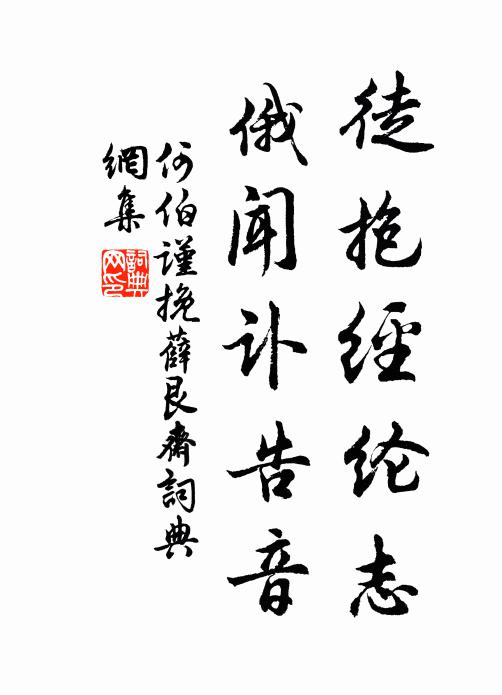 徒抱經纶志
俄闻讣告音
何伯謹挽薛艮齋詞典
網集
詞典
网印